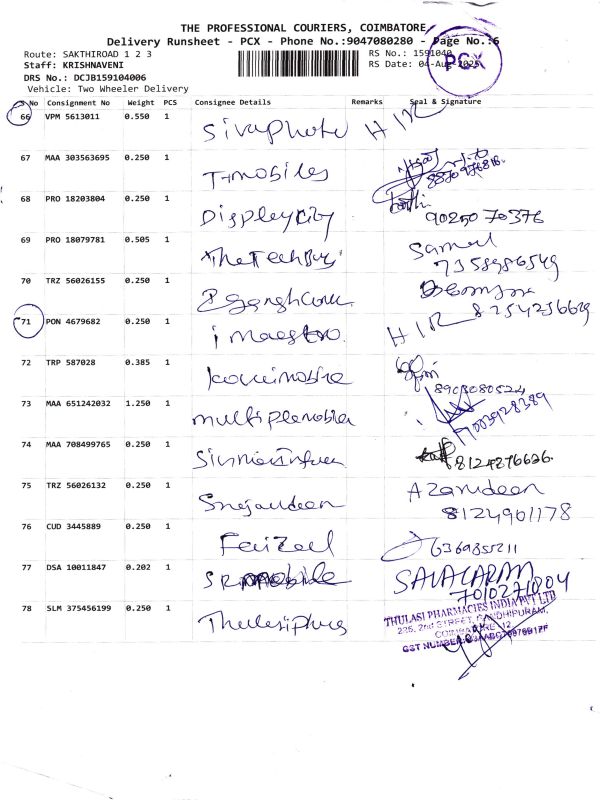 THE PROFESSIONAL COURIERS, COIMBATORE
Delivery Runsheet - PCX - Phone No.:9047080280 - Page No.:6
Route: SAKTHIROAD 1 2 3
RS No.: 1591040
Staff: KRISHNAVENI
RS Date: 04-Aug-2025
PCX
DRS No.: DCJB159104006
Vehicle: Two Wheeler Delivery
S No Consignment No Weight PCS Consignee Details Remarks Seal & Signature
66 VPM 5613011 0.550 1 Sivaphoto HIR
67 MAA 303563695 0.250 1 T-mobiles
68 PRO 18203804 0.250 1 Displaycity 90250 70376
69 PRO 18079781 0.505 1 TheTechBuy Samuel
7358986549
70 TRZ 56026155 0.250 1 8254236629
71 PON 4679682 0.250 1 i maestro HIR
72 TRP 587028 0.385 1 8903080524
73 MAA 651242032 1.250 1 7003928389
74 MAA 708499765 0.250 1 8124276626
75 TRZ 56026132 0.250 1 Azarudeen
8124901178
76 CUD 3445889 0.250 1 Faizal 6369855211
77 DSA 10011847 0.202 1 SR mobile
7010271004
78 SLM 375456199 0.250 1
THULASI PHARMACIES INDIA PVT LTD
2nd STREET, GANDHIPURAM,
COIMBATORE 12
GST NUMBER